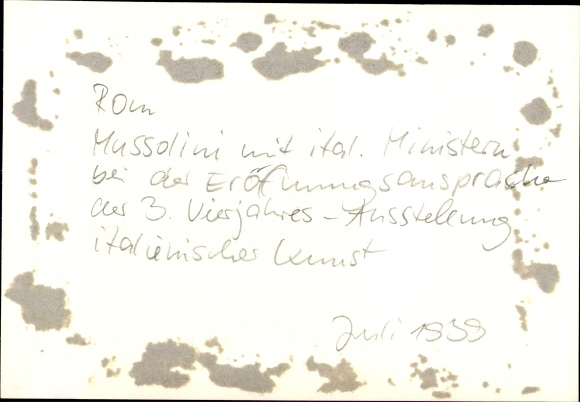 Rom
Mussolini mit ital. Ministern
bei der Eröffnungsansprache
der 3. Vierjahres-Ausstellung
italienischer Kunst
Juli 1939